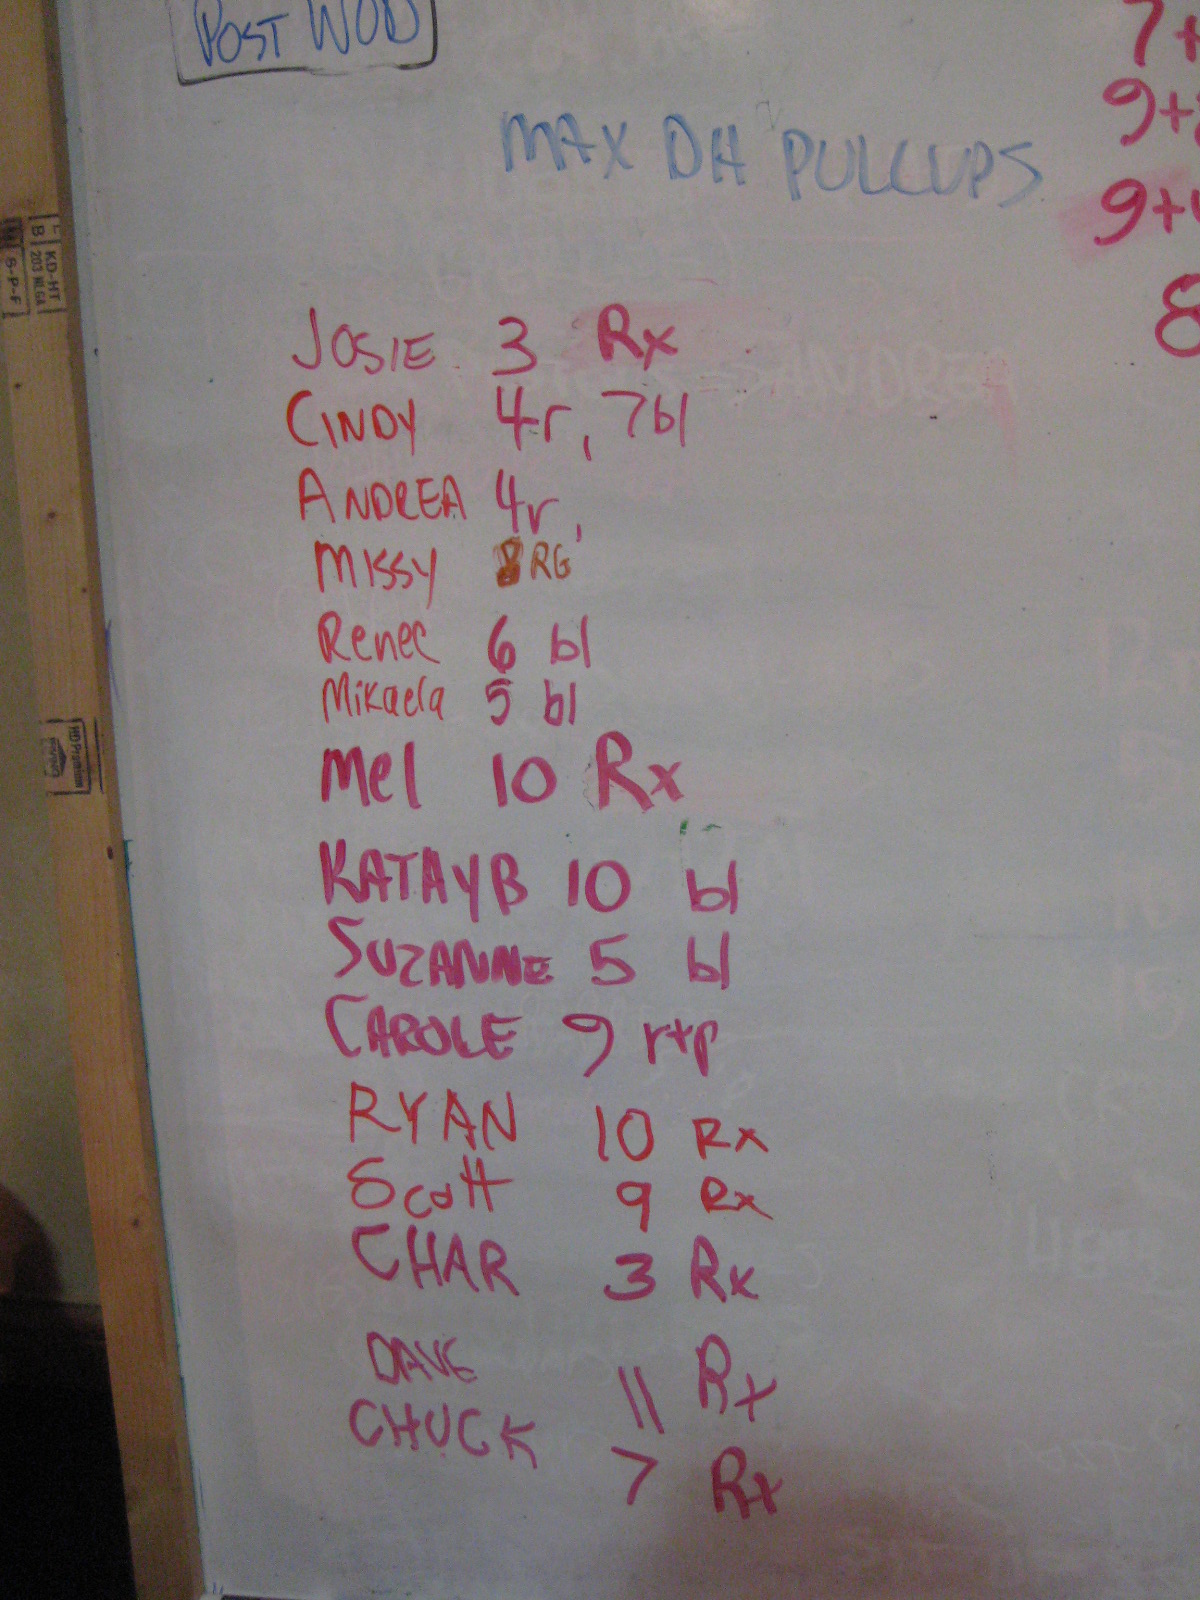 POST WOD
MAX DH PULLUPS
7+
9+
9+
8
JOSIE 3 Rx
CINDY 4r, 7bl
ANDREA 4r,
MISSY 8 RG
Renee 6 bl
Mikaela 5 bl
Mel 10 Rx
KATAYB 10 bl
SUZANNE 5 bl
CAROLE 9 r+p
RYAN 10 Rx
Scott 9 Rx
CHAR 3 Rx
DAVE 11 Rx
CHUCK 7 Rx
KD-HT
S-P-F